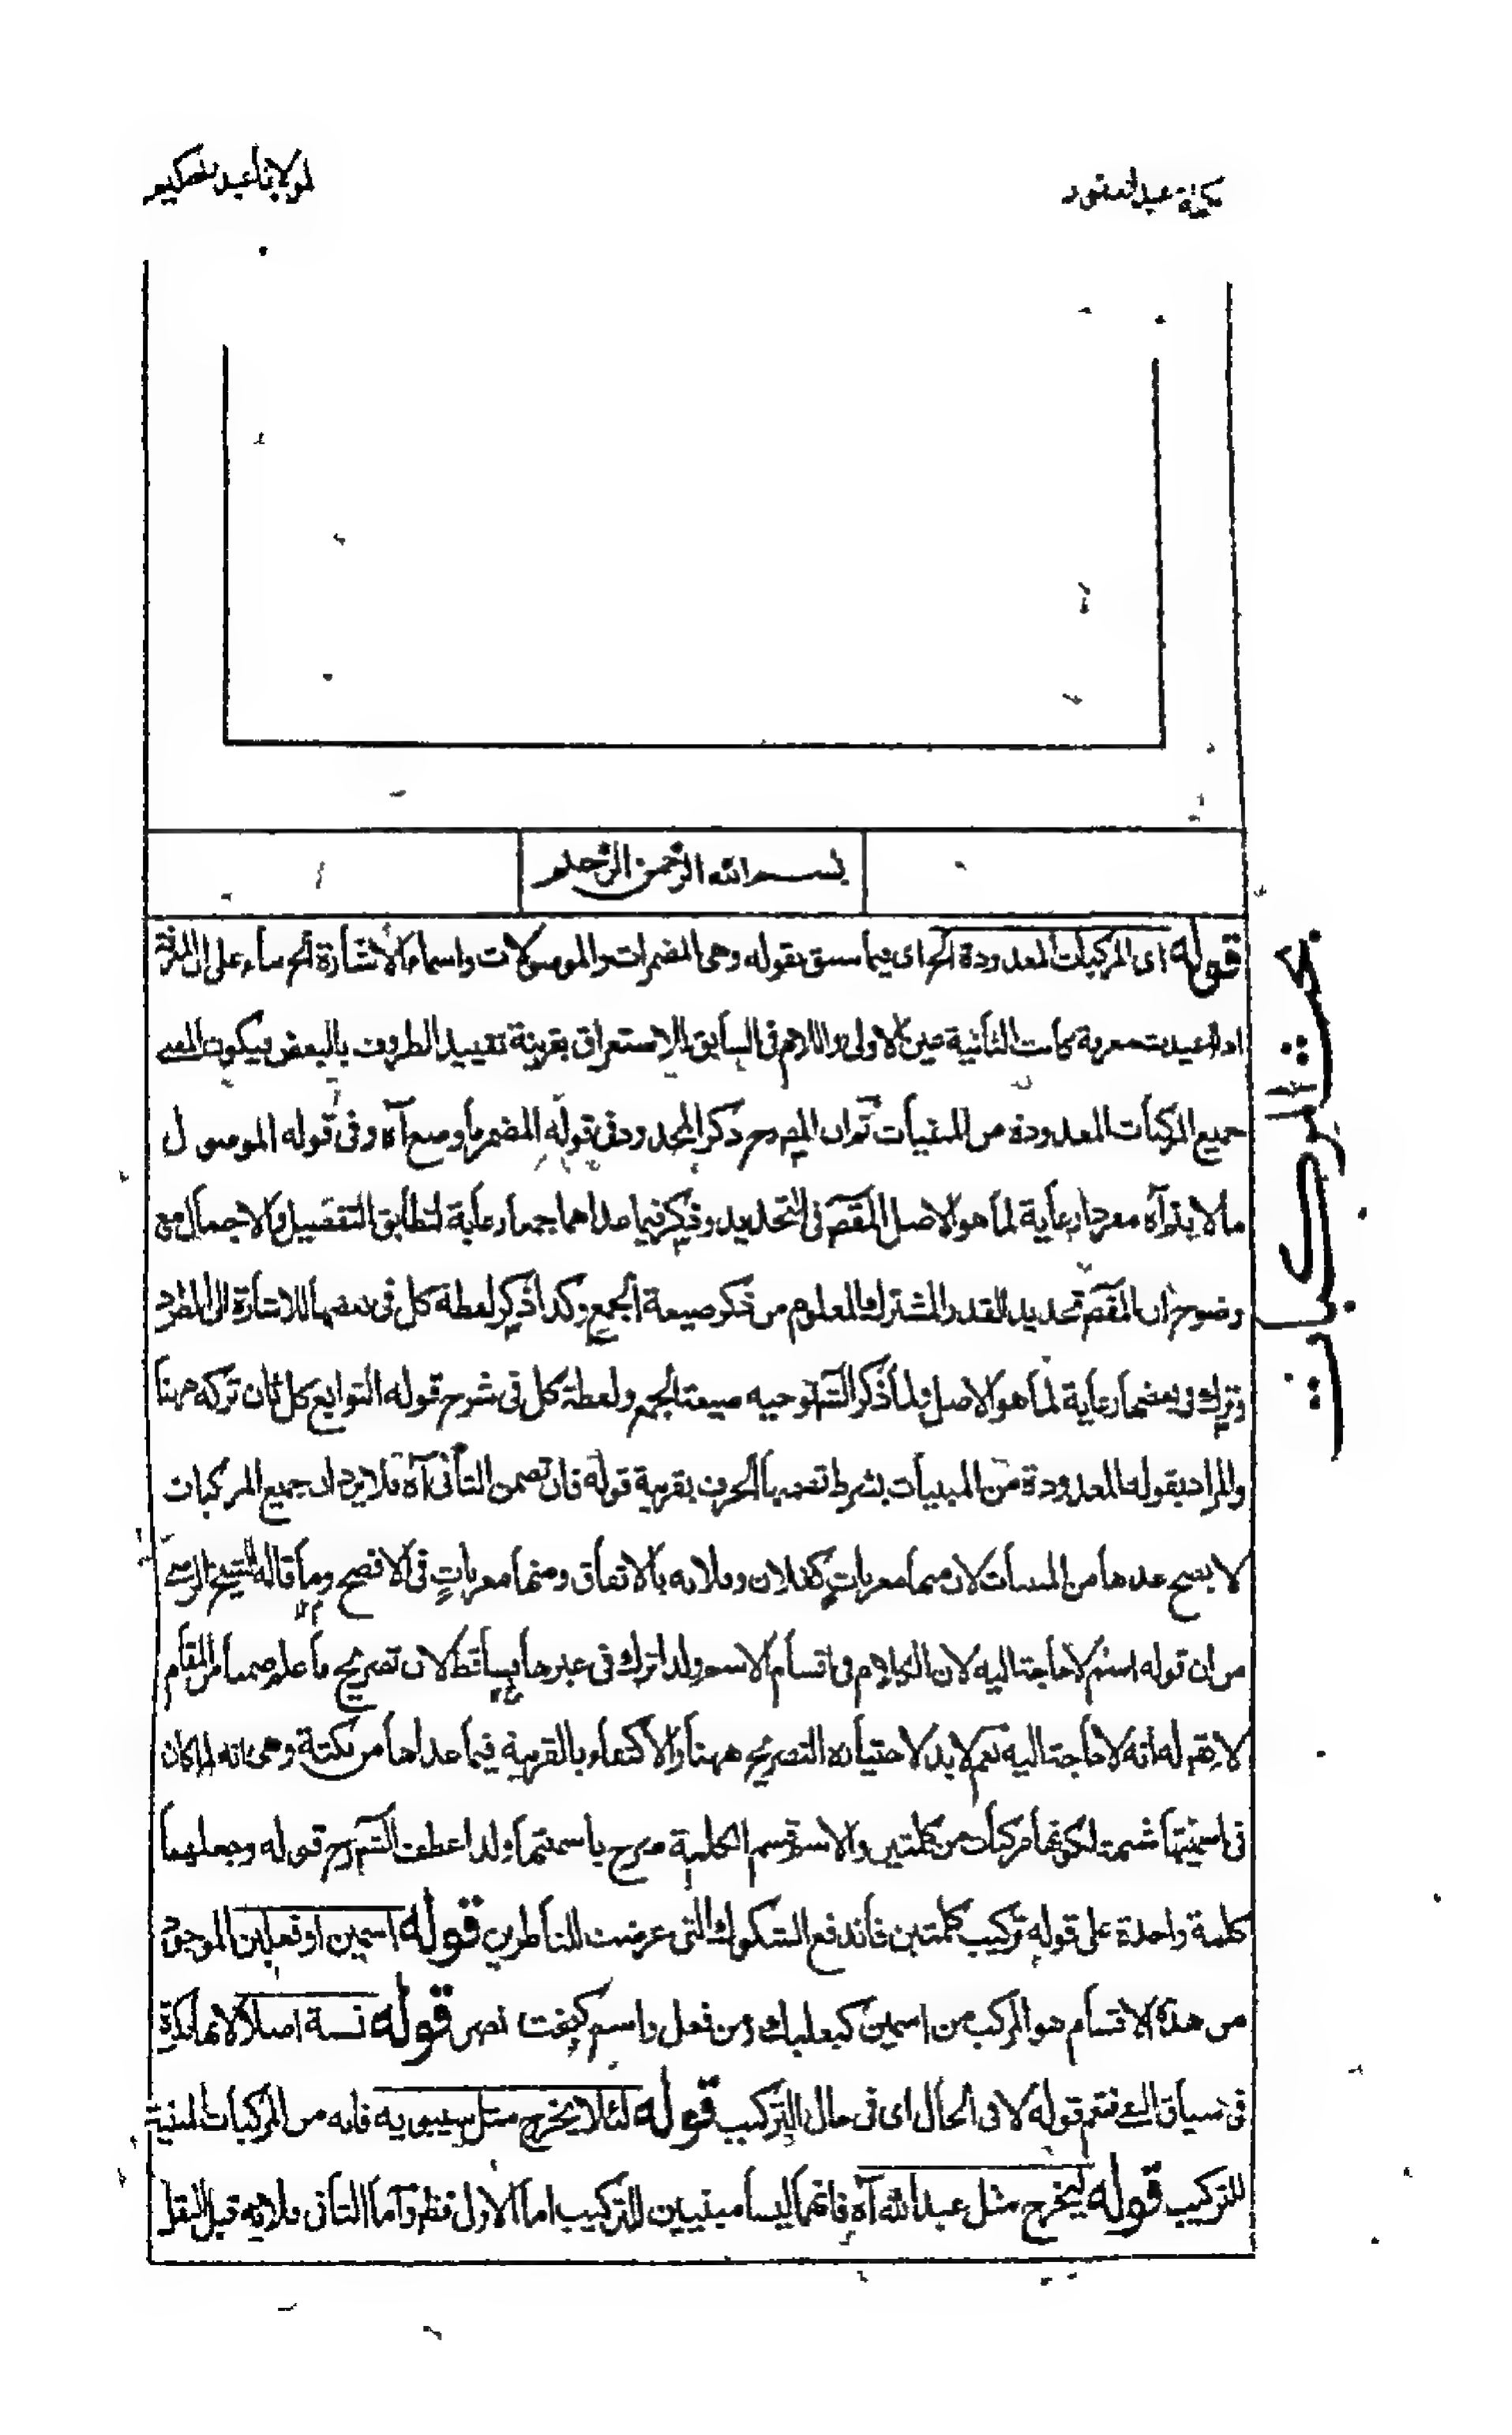 تكملة عبد الغفور
لمولانا عبد الحكيم
بسم الله الرحمن الرحيم
بحث المركبات
قوله اى المركبات المعدودة الخ اى فيما سبق بقوله وهى المضمرات والموصولات واسماء الاشارة الخ بناء على ان المعرفة
اذا اعيدت معرفة كانت الثانية عين الاولى واللام فى السابق للاستغراق بقرينة تقييد الظروف بالبعض فيكون المعنى
جميع المركبات المعدودة من المبنيات ثم ان المص رح ذكر المحدود فى قوله المضمر ما وضع آه وفى قوله الموصول
ما لا يتم آه مفردا رعاية لما هو الاصل المقصم فى التحديد وذكر فيما عداهما جمعا رعاية لتطابق التفصيل والاجمال مع
وضوح ان المقصم تحديد القدر المشترك المعلوم من ذكر صيغة الجمع وكذا ذكر لفظة كل فى بعضها للاشارة الى المطرد
وترك فى بعضها رعاية لما هو الاصل ولما ذكر الشم توجيه صيغة الجمع ولفظة كل فى شرح قوله التوابع كل ثان تركه ههنا
والمراد بقوله المعدودة من المبنيات بشرط تضمنه بالحرف بقرينة قوله فان تضمن الثانى آه فلا يرد ان جميع المركبات
لا يصح عدها من المبنيات لان منها معربات كفلان وفلانه بالاتفاق ومنها معربات فى الافصح وما قاله الشيخ الرضى
من ان قوله اسم لا حاجة اليه لان الكلام فى اقسام الاسم ولذا ترك فى غيرها فساقط لان تصريح ما علم ضمنا من المقام
لا يقم له انه لا حاجة اليه نعم لا بد لاختياره التصريح ههنا والاكتفاء بالقرينة فيما عداها من نكتة وهى انه لما كان
فى اسميتها شبهة لكونها مركبات من كلمتين والاسم قسم الكلمة صرح باسميتها ولذا عطف الشم رح قوله وجعلهما
كلمة واحدة على قوله تركيب كلمتين فاندفع الشكوك التى عرضت للناظرين قوله اسمين او فعلين الموجود
من هذه الاقسام هو المركب من اسمين كبعلبك ومن فعل واسم كبخت نصر قوله نسبة اصلا لانها نكرة
فى سياق النفى فتعم قوله لا فى الحال اى فى حال التركيب قوله لئلا يخرج مثل سيبويه فانه من المركبات المبنية
للتركيب قوله ليخرج مثل عبد الله آه فانهما ليسا مبنيين للتركيب اما الاول فظم واما الثانى فلانه قبل النقل